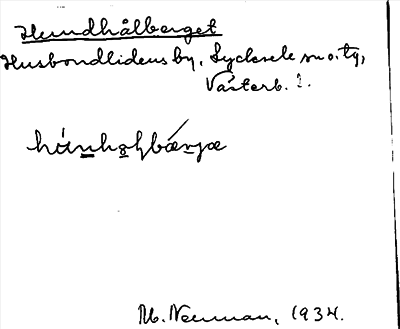 Hundhålberget
Husbondlidens by, Lycksele sn o. ty,
Västerb. l.
M. Neuman, 1934.